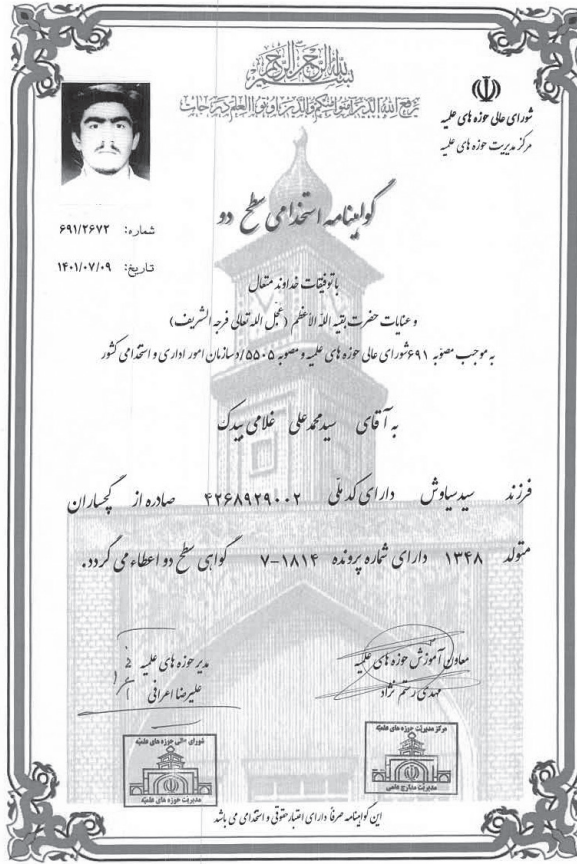 بسم الله الرحمن الرحیم
یرفع الله الذین آمنوا منکم والذین اوتوا العلم درجات
شورای عالی حوزه های علمیه
مرکز مدیریت حوزه های علمیه
گواهینامه استخدامی سطح دو
شماره: ۶۹۱/۲۶۷۲
تاریخ: ۱۴۰۱/۰۷/۰۹
با توفیقات خداوند متعال
و عنایات حضرت بقیه الله الأعظم (عجل الله تعالی فرجه الشریف)
به موجب مصوبه ۶۹۱ شورای عالی حوزه های علمیه و مصوبه ۵۵۰۵/د سازمان امور اداری و استخدامی کشور
به آقای سید محمد علی غلامی بیدک
فرزند سید سیاوش دارای کد ملی ۴۲۶۸۹۲۹۰۰۲ صادره از گچساران
متولد ۱۳۴۸ دارای شماره پرونده ۱۸۱۴-۷ گواهی سطح دو اعطاء می گردد.
معاون آموزش حوزه های علمیه
مهدی رستم نژاد
مدیر حوزه های علمیه
علیرضا اعرافی
مرکز مدیریت حوزه های علمیه
مدیریت مدارج علمی
شورای عالی حوزه های علمیه
مدیریت حوزه های علمیه
این گواهینامه صرفاً دارای اعتبار حقوقی و استخدامی می باشد